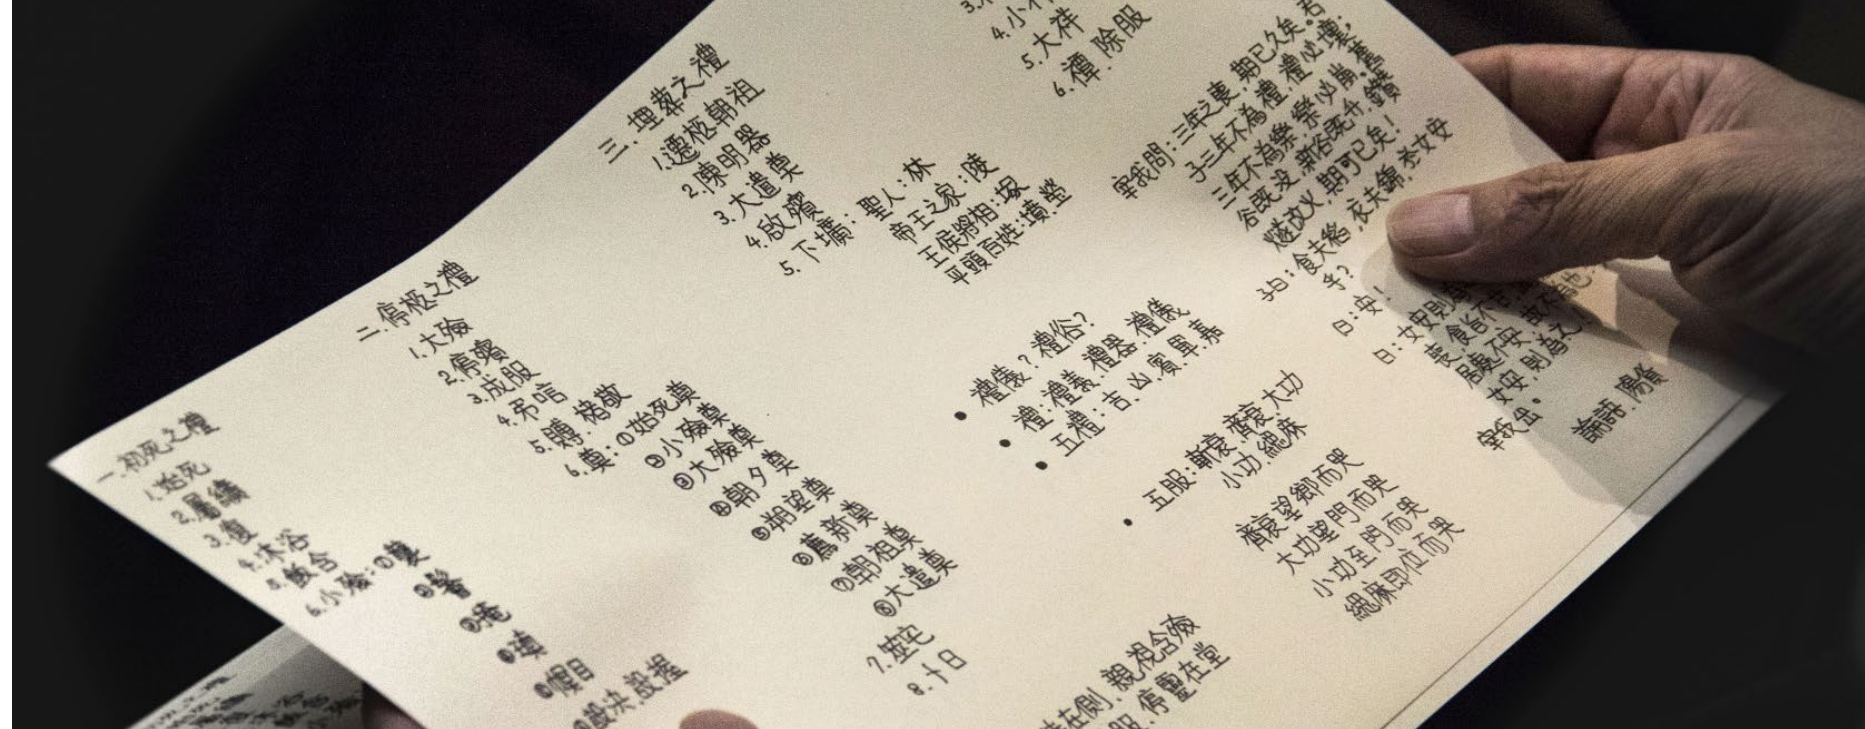 一.初死之禮
1.始死
2.屬纊
3.復
4.沐浴
5.飯含
6.小殮:①襲
②髻
③掩
④瑱
⑤幎目
⑥設決.設握
二.停柩之禮
1.大殮
2.停殯
3.成服
4.弔唁
5.賻.禭敬
6.奠:①始死奠
②小殮奠
③大殮奠
④朝夕奠
⑤朔望奠
⑥薦新奠
⑦朝祖奠
⑧大遣奠
7.筮宅
8.卜日
三.埋葬之禮
1.遷柩朝祖
2.陳明器
3.大遣奠
4.啟殯
5.下壙:聖人:林
帝王之家:陵
王侯將相:塚
平頭百姓:墳.塋
4.小祥
5.大祥
6.禫.除服
•禮儀?禮俗?
•禮.禮義.禮器.禮儀
•五禮:吉.凶.賓.軍.嘉
•五服:斬衰.齊衰.大功
小功.緦麻
齊衰望鄉而哭
大功望門而哭
小功至門而哭
緦麻即位而哭
在側.親視含殮
服.停靈在堂
宰我問:三年之喪,期已久矣.君
子三年不為禮,禮必壞,
三年不為樂,樂必崩,舊
谷既没,新谷既升,鑽
燧改火,期可已矣!
子曰:食夫稻,衣夫錦,於女安
乎?
曰:安!
曰:女安則
喪,食旨不
居處不安,故不為也.
女安,則為之!
宰我出。
論語.陽貨